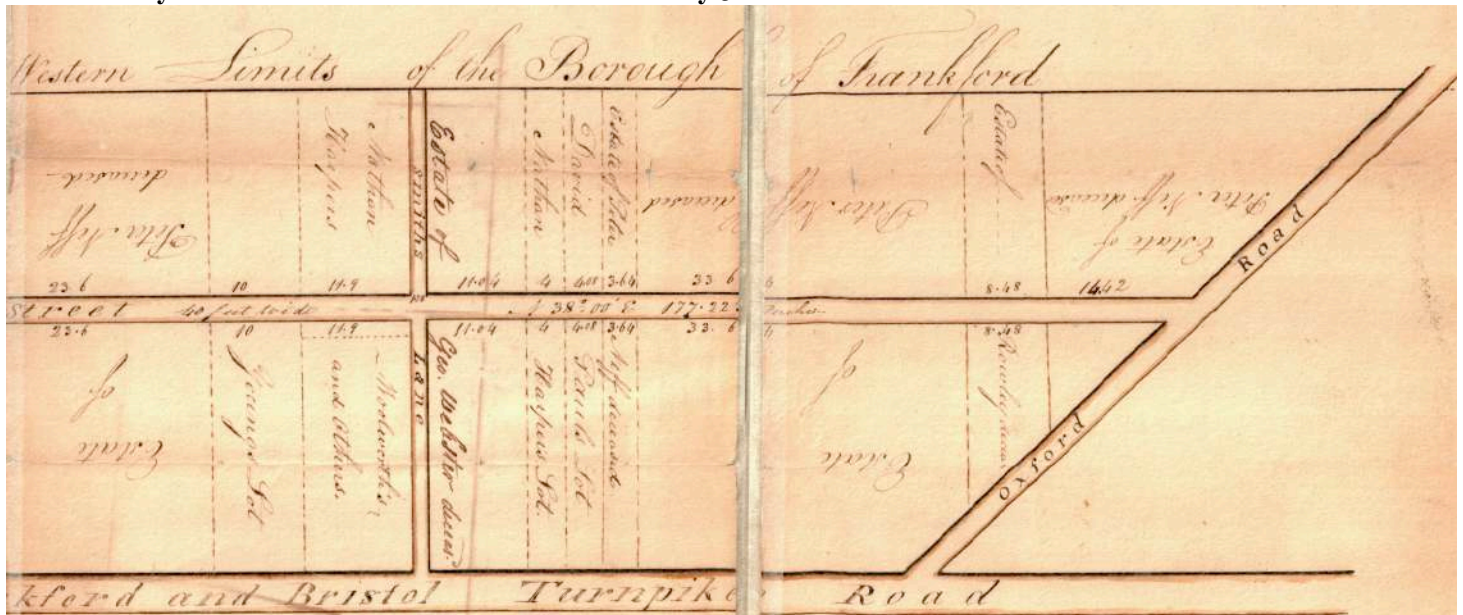 Western Limits of the Borough of Frankford
Peter Neff
deceased
Nathan
Harpers
Smiths
Estate of
Nathan
David
Estate of Peter
deceased
Peter Neff
Estate of
Estate of
Peter Neff deceased
Road
23.6 10 11.9 11.04 4 4.08 3.64 33 6 8.48 14.42
Street 40 feet wide N 38°.00' E 177.22
23.6 10 11.9 11.04 4 4.08 3.64 33. 6 8.48
Estate
of
Lot
and Others.
Lane
Geo. Webster
Harpers Lot.
Pauls Lot
Neff deceased
Estate
of
Rowley
Oxford
kford and Bristol Turnpike Road